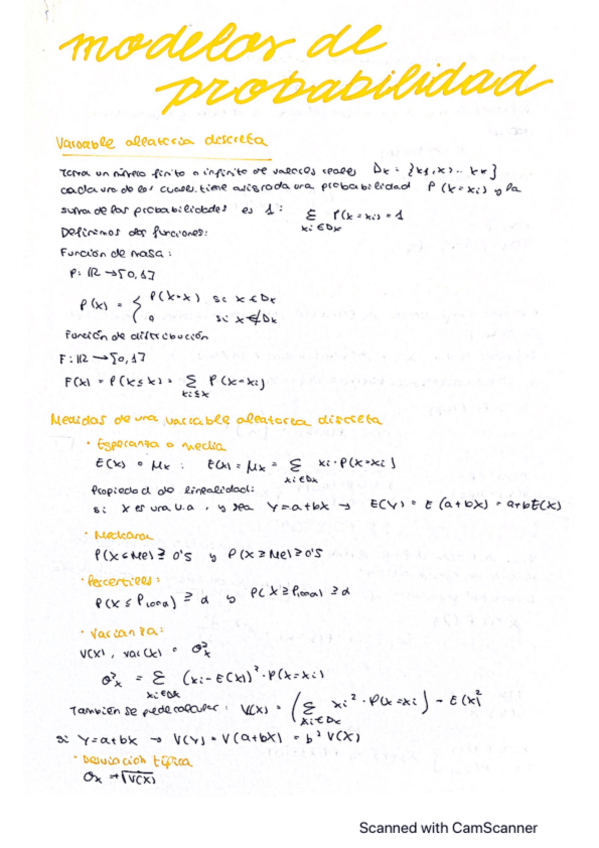 modelos de
probabilidad
Variable aleatoria discreta
Toma un número finito o infinito de valores reales Dx = {x1, x2... xk}
cada uno de los cuales tiene asignada una probabilidad P(X=xi) y la
suma de las probabilidades es 1: Σ xi∈Dx P(X=xi) = 1
Definimos dos funciones:
Función de masa:
P: IR → [0,1]
P(x) = { P(X=x) si x ∈ Dx
0 si x ∉ Dx
Función de distribución
F: IR → [0,1]
F(x) = P(X≤x) = Σ xi≤x P(X=xi)
Medidas de una variable aleatoria discreta
· Esperanza o media
E(X) o μx : E(X) = μx = Σ xi∈Dx xi · P(X=xi)
Propiedad de linealidad:
si X es una v.a, y sea Y=a+bX → E(Y) = E(a+bX) = a+bE(X)
· Mediana
P(X≤Me) ≥ 0'5 y P(X≥Me) ≥ 0'5
· Percentiles:
P(X≤P100α) ≥ α y P(X≥P100α) ≥ α
· Varianza:
V(X), var(X) = σ²x
σ²x = Σ xi∈Dx (xi-E(X))² · P(X=xi)
También se puede calcular: V(X) = (Σ xi∈Dx xi² · P(X=xi)) - E(X)²
si Y=a+bX → V(Y) = V(a+bX) = b² V(X)
· Desviación típica
σx → √V(X)
Scanned with CamScanner